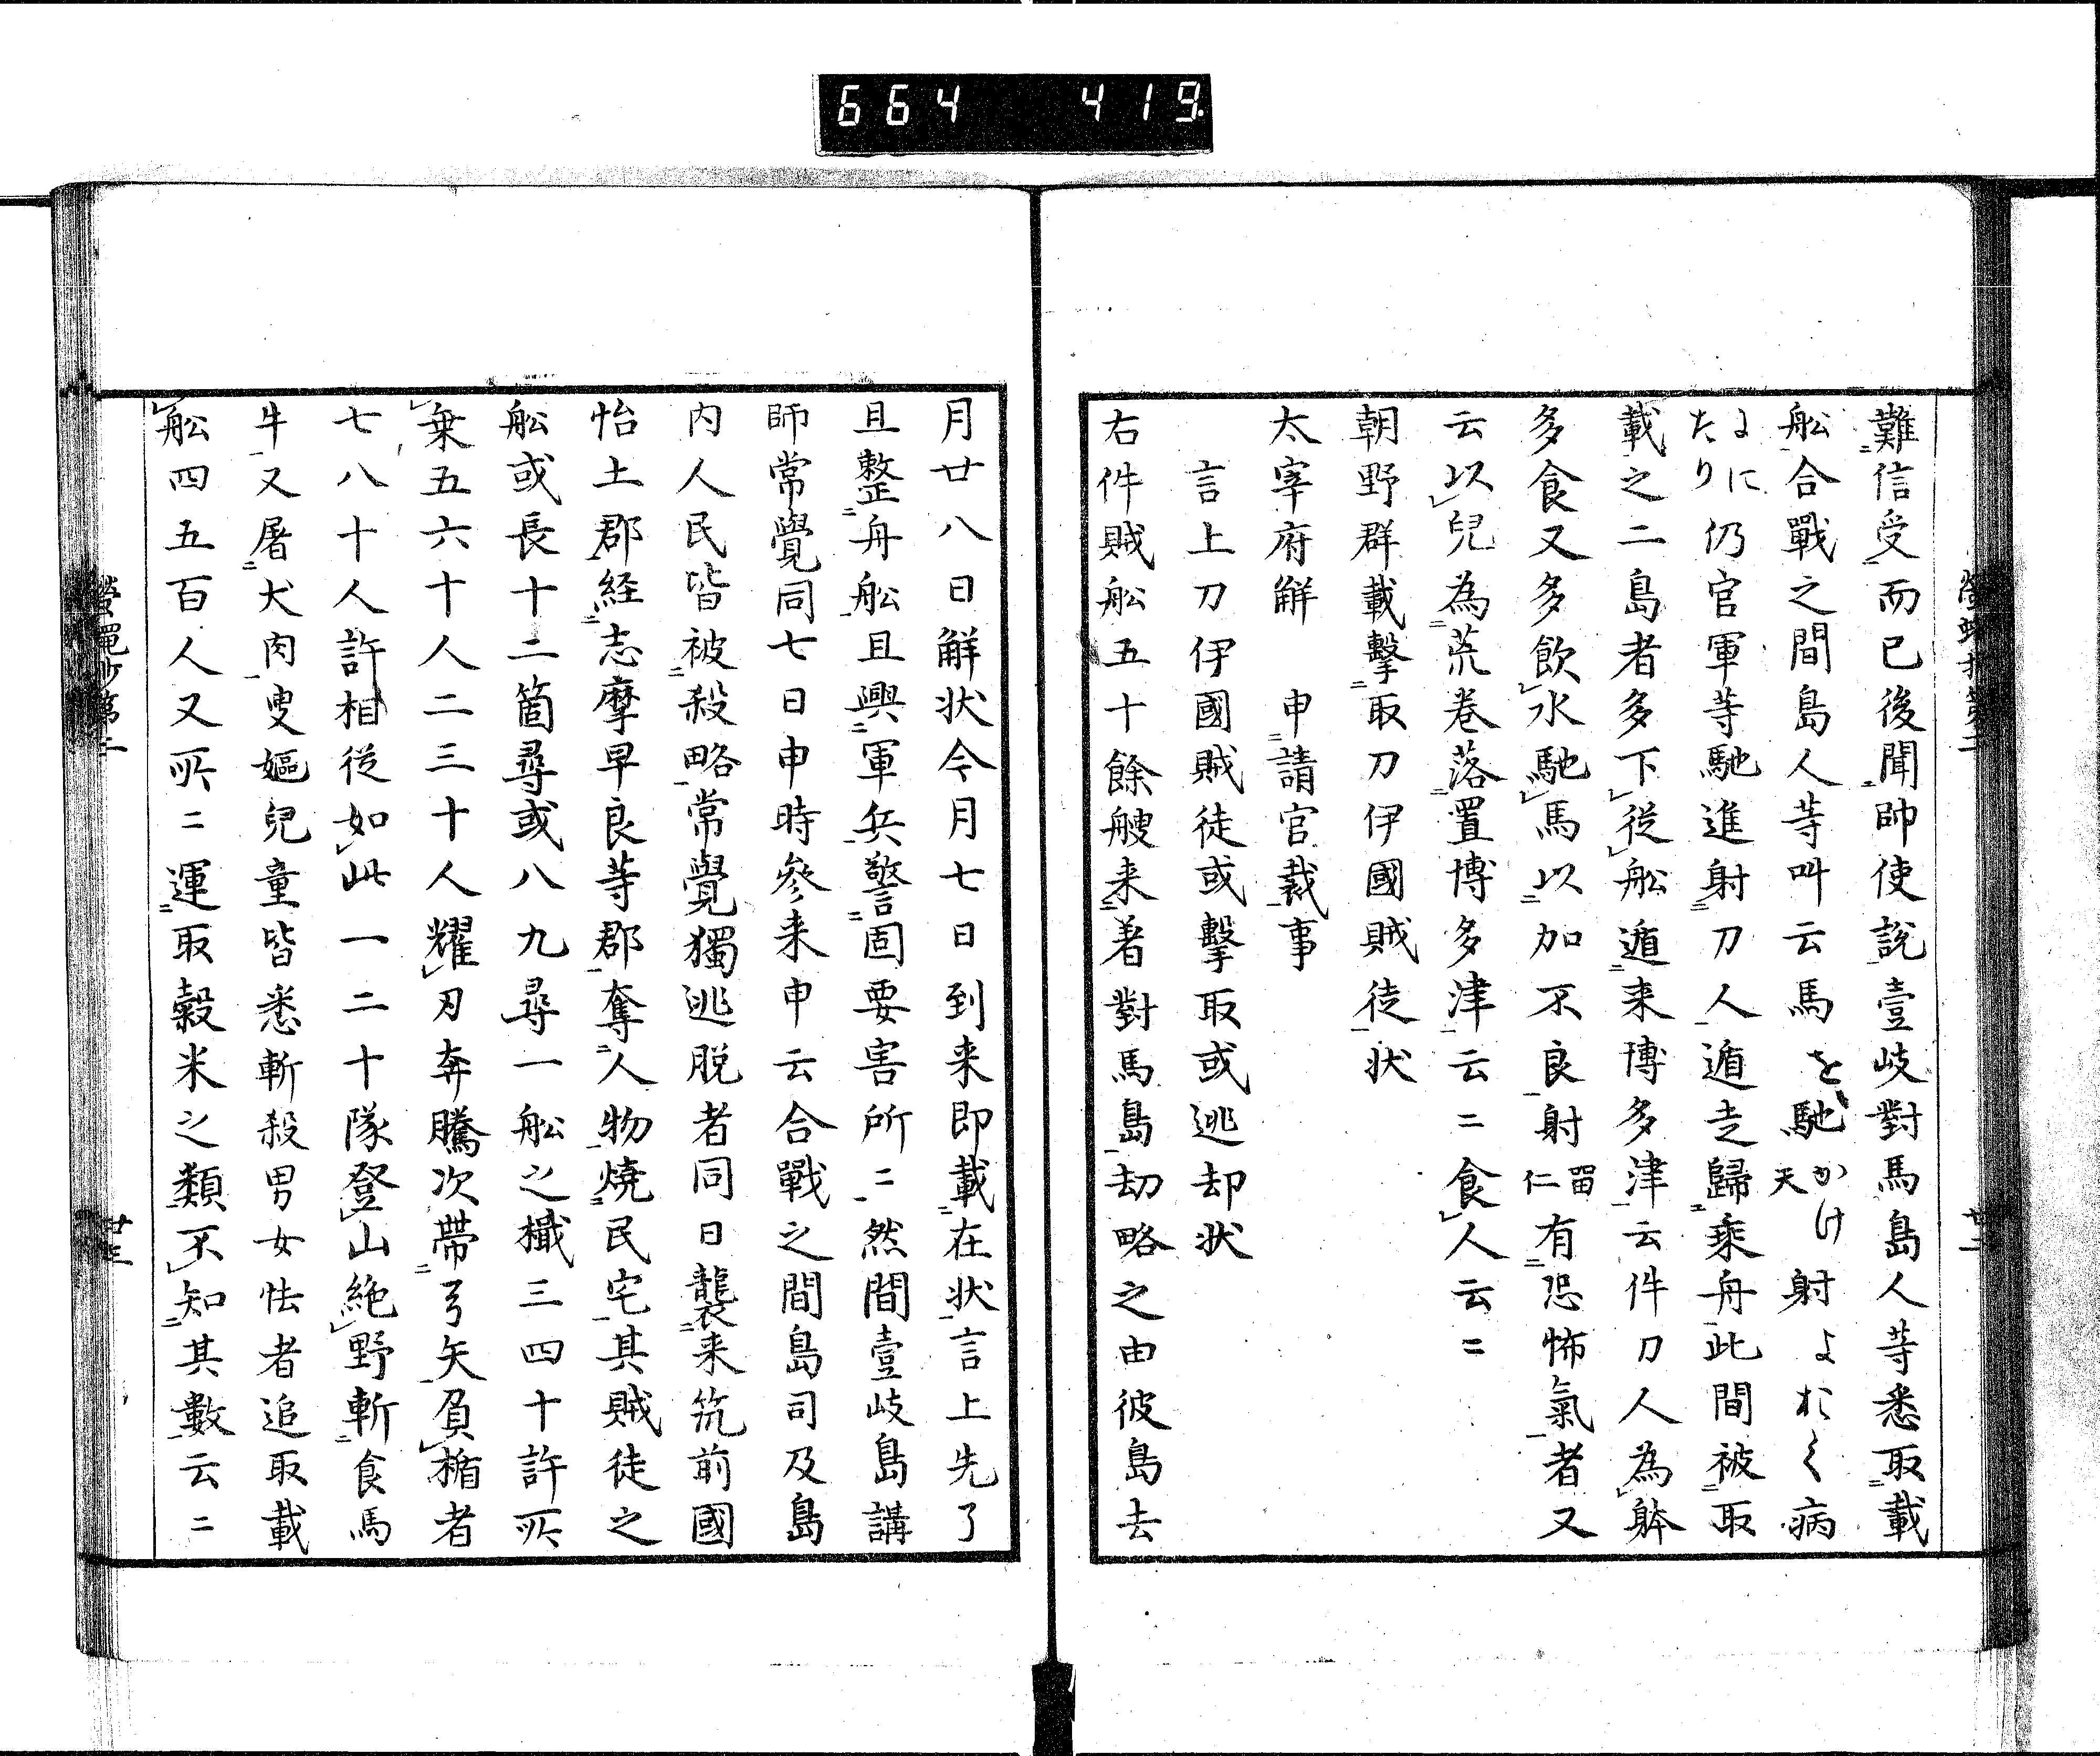 664 419
難信受而已後聞帥使説壹岐對馬島人等悉取載
舩合戰之間島人等叫云馬を馳かけ天射よおく病
よにたり仍官軍等馳進射刀人遁走歸乘舟此間被取
載之二島者多下従舩遁来博多津云件刀人為躰
多食又多飲水馳馬以加不良射留仁有恐怖氣者又
云以兒為荒巻落置博多津云二食人云二
朝野群載擊取刀伊國賊徒状
太宰府解 申請官裁事
言上刀伊國賊徒或擊取或逃却状
右件賊舩五十餘艘来着對馬島劫略之由彼島去
月廿八日解状今月七日到来即載在状言上先了
且整舟舩且興軍兵警固要害所二然間壹岐島講
師常覺同七日申時參来申云合戰之間島司及島
内人民皆被殺略常覺獨逃脱者同日襲来筑前國
怡土郡経志摩早良等郡奪人物焼民宅其賊徒之
舩或長十二箇尋或八九尋一舩之檝三四十許所
乗五六十人二三十人耀刃奔騰次帶弓矢負楯者
七八十人許相従如此一二十隊登山絶野斬食馬
牛又屠犬肉叟嫗兒童皆悉斬殺男女怯者追取載
舩四五百人又所二運取穀米之類不知其數云二